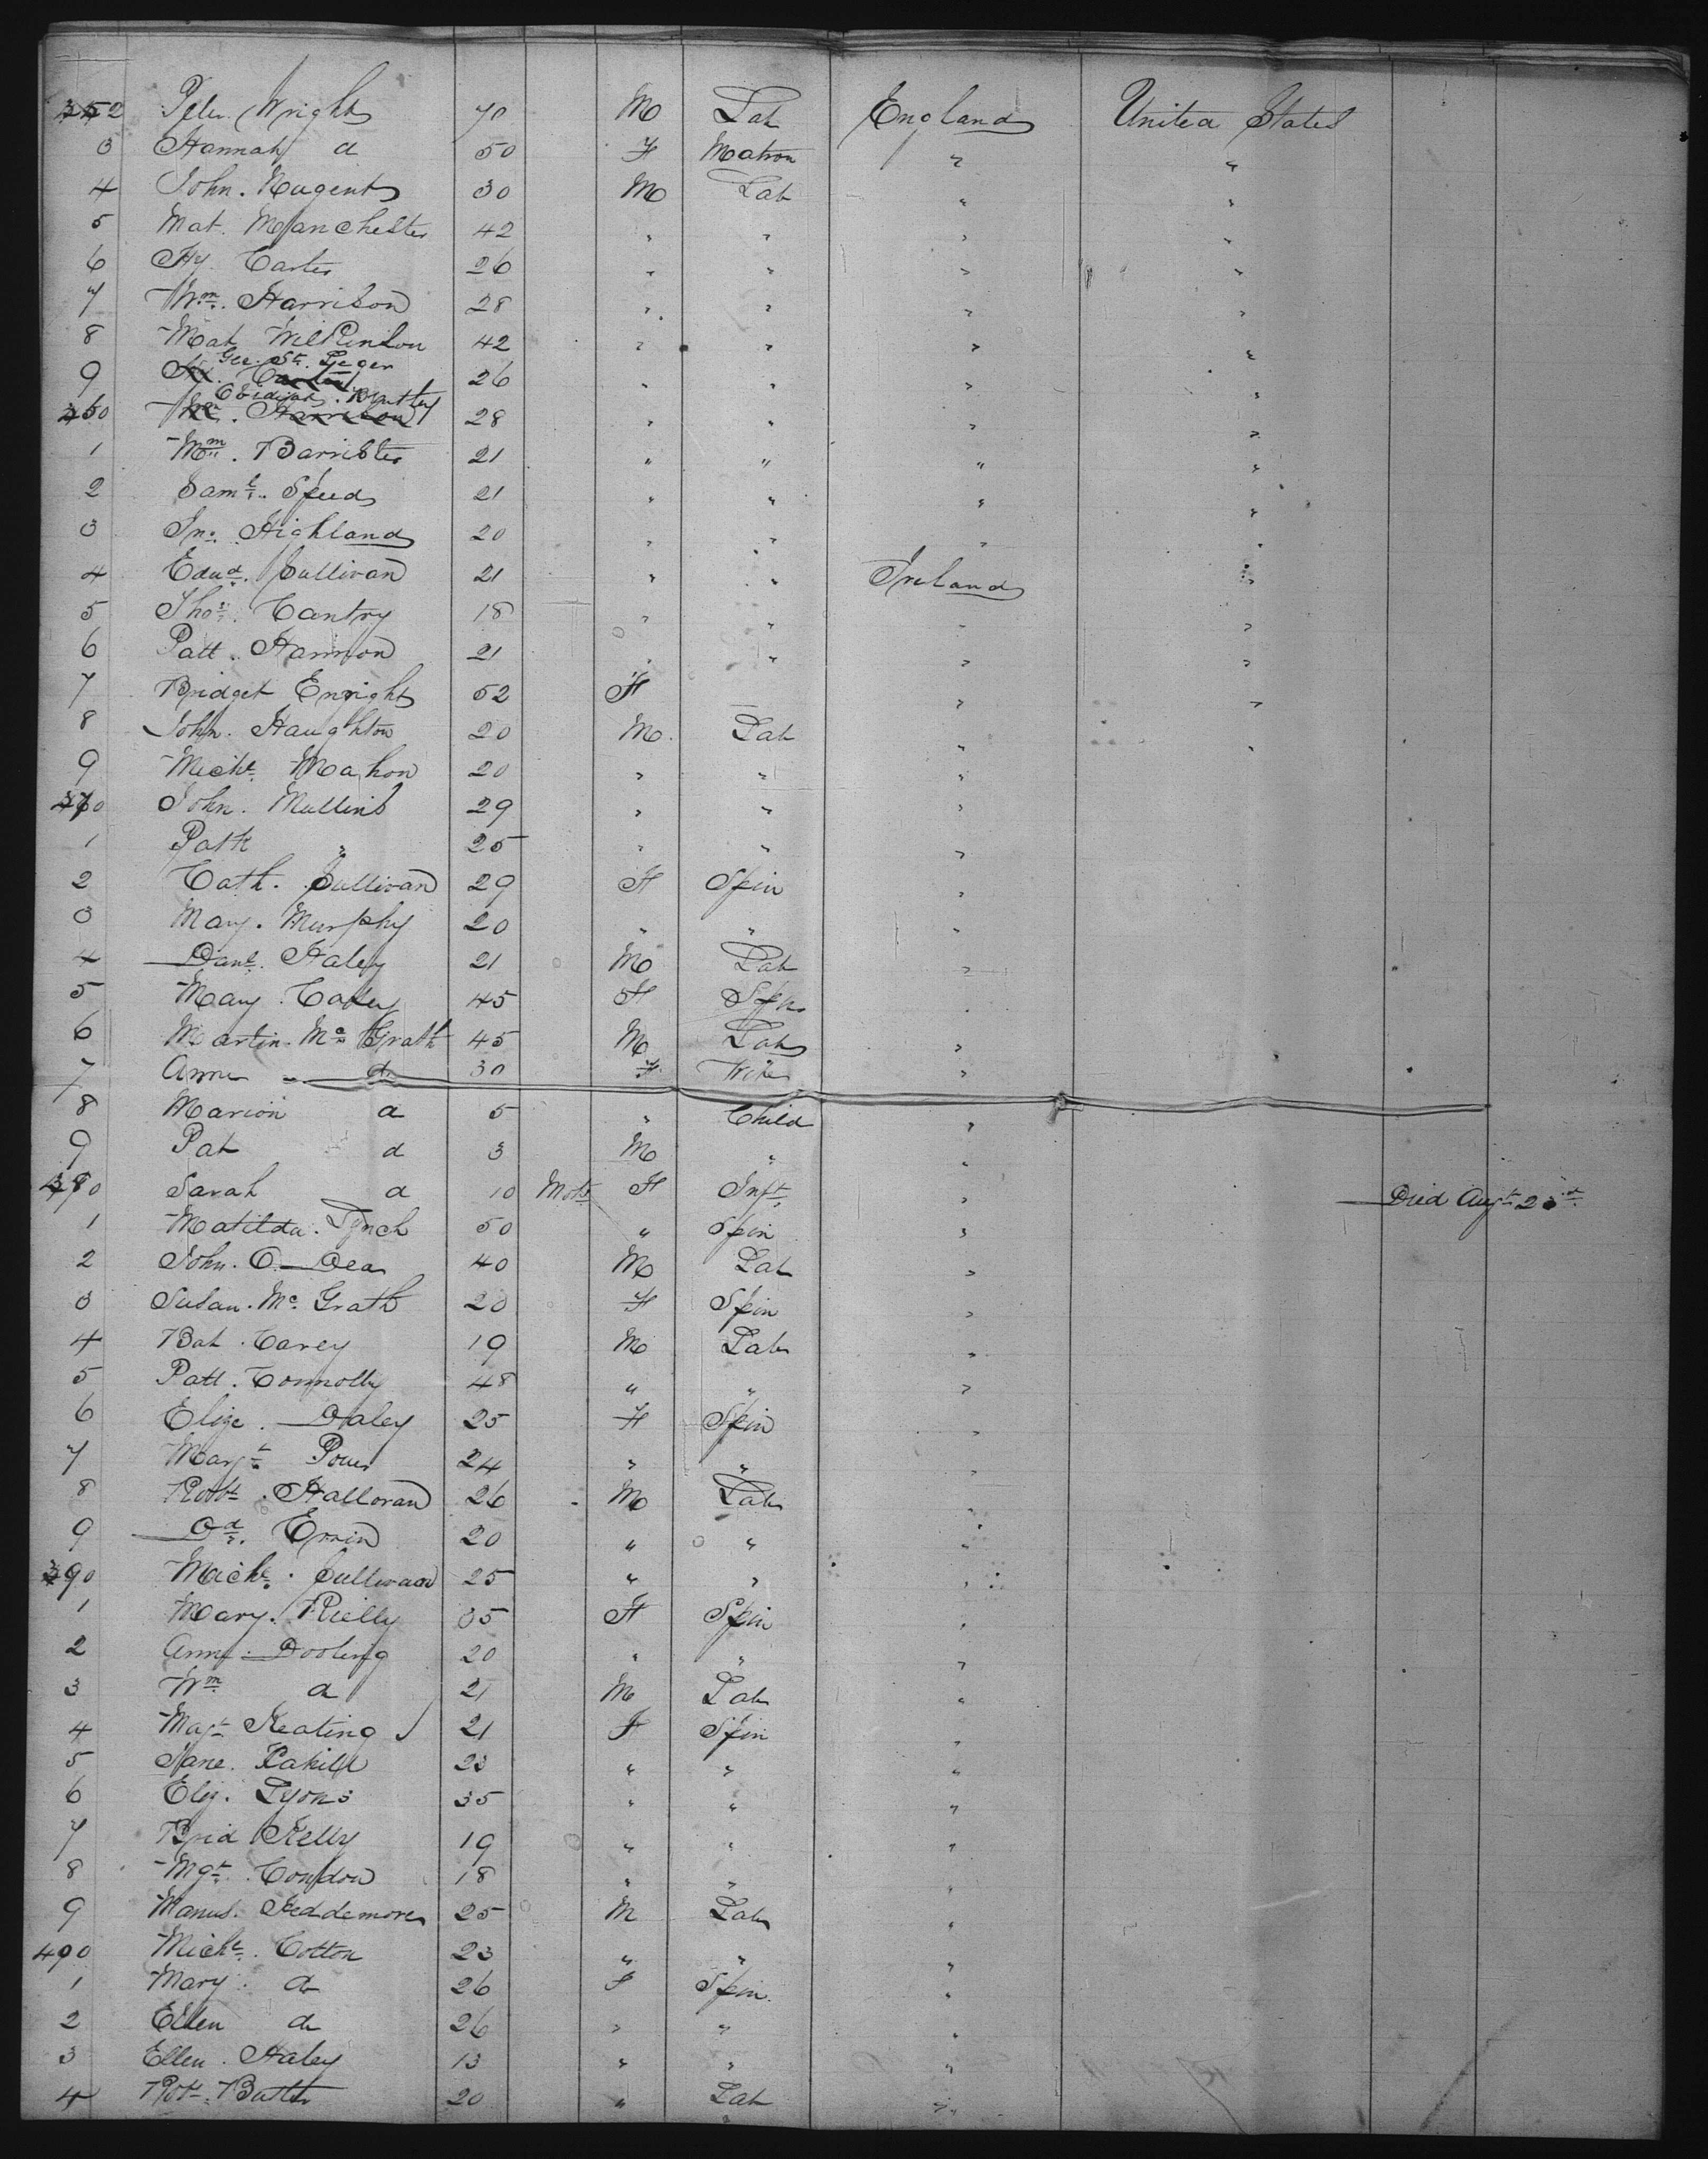 352 Peter Wright 70 M Lab England United States
3 Hannah do 50 F Matron " "
4 John. Nugent 30 M Lab " "
5 Mat. Manchester 42 " " " "
6 Hy. Carter 26 " " " "
7 Wm. Harrison 28 " " " "
8 Mat Wilkinson 42 " " " "
Geo. St. Leger
9 Hy. Carter 26 " " " "
360 Wm. Harrison 28 " " " "
1 Wm. Barrister 21 " " " "
2 Saml. Speed 21 " " " "
3 Jno. Highland 20 " " " "
4 Edwd. Sullivan 21 " " Ireland "
5 Thos. Cantry 18 " " " "
6 Patt. Harmon 21 " " " "
7 Bridget Enright 52 F " "
8 John. Haughton 20 M. Lab " "
9 Michl. Mahon 20 " " "
370 John. Mullins 29 " " "
1 Patk " 25 " " "
2 Cath. Sullivan 29 F Spin "
3 Mary. Murphy 20 " " "
4 Danl. Haley 21 M Lab "
5 Mary. Coaley 45 F Spin "
6 Martin. Mc Grath 45 M Lab "
7 Anne do 30 F Wife "
8 Marion do 5 " Child "
9 Pat do 3 M " "
380 Sarah do 10 Mots F Inft. " Died Augt 23d.
1 Matilda. Lynch 50 " Spin "
2 John. O. Dea 40 M Lab "
3 Susan. Mc. Grath 20 F Spin "
4 Bat. Carey 19 M Lab "
5 Patt. Connolly 48 " " "
6 Elize. Daley 25 F Spin "
7 Margt. Power 24 " " "
8 Robt. Halloran 26 M Lab "
9 Dd. Errin 20 " " "
390 Michl. Sullivan 25 " " "
1 Mary. Rielly 35 F Spin "
2 Anne. Dooling 20 " " "
3 Wm do 21 M Lab "
4 Magt. Keating 21 F Spin "
5 Jane. Cahill 23 " " "
6 Eliz. Lyons 35 " " "
7 Brid Kelly 19 " " "
8 Mgt. Condon 18 " " "
9 Manus. Feddemore 25 M Lab "
400 Michl. Cotton 23 " " "
1 Mary. do 26 F Spin. "
2 Ellen do 26 " " "
3 Ellen. Haley 13 " " "
4 Robt. Butler 20 " Lab "